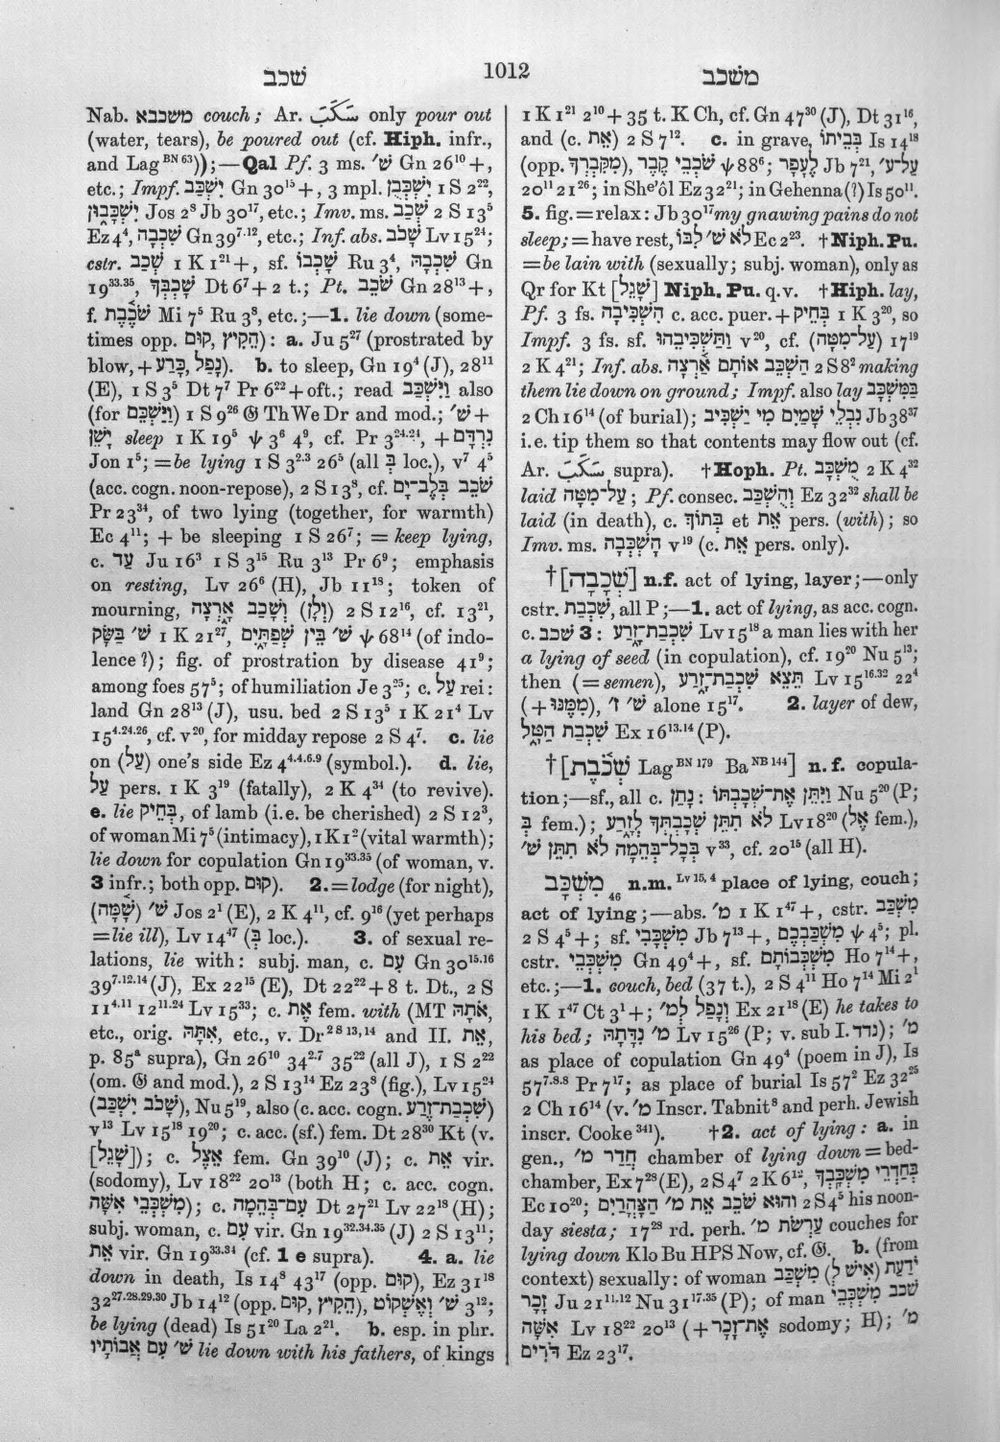 שכב
1012
משכב
Nab. משכבא couch; Ar. سَكَبَ only pour out
(water, tears), be poured out (cf. Hiph. infr.,
and Lag BN 63));—Qal Pf. 3 ms. שׁ׳ Gn 26¹⁰+,
etc.; Impf. יִשְׁכַּב Gn 30¹⁵+, 3 mpl. יִשְׁכְּבֻן 1 S 2²²,
יִשְׁכָּבוּן Jos 2⁸ Jb 30¹⁷, etc.; Imv. ms. שְׁכַב 2 S 13⁵
Ez 4⁴, שִׁכְבָה Gn 39⁷·¹², etc.; Inf. abs. שָׁכֹב Lv 15²⁴;
cstr. שְׁכַב 1 K 1²¹+, sf. שָׁכְבוֹ Ru 3⁴, שִׁכְבָהּ Gn
19³³·³⁵, שָׁכְבְּךָ Dt 6⁷+2 t.; Pt. שֹׁכֵב Gn 28¹³+,
f. שֹׁכֶבֶת Mi 7⁵ Ru 3⁸, etc.;—1. lie down (some-
times opp. הֵקִיץ, קוּם): a. Ju 5²⁷ (prostrated by
blow, + נָפַל, כָּרַע). b. to sleep, Gn 19⁴ (J), 28¹¹
(E), 1 S 3⁵ Dt 7⁷ Pr 6²²+oft.; read וַיִּשְׁכַּב also
(for וַיַּשְׁכֵּם) 1 S 9²⁶ 𝔊 Th We Dr and mod.; שׁ׳+
יָשֵׁן sleep 1 K 19⁵ ψ 3⁶ 4⁹, cf. Pr 3²⁴·²⁴, + נִרְדַּם
Jon 1⁵; =be lying 1 S 3²·³ 26⁵ (all בְּ loc.), v⁷ 4⁵
(acc. cogn. noon-repose), 2 S 13⁸, cf. שֹׁכֵב בְּלֶב־יָם
Pr 23³⁴, of two lying (together, for warmth)
Ec 4¹¹; + be sleeping 1 S 26⁷; = keep lying,
c. עַד Ju 16³ 1 S 3¹⁵ Ru 3¹³ Pr 6⁹; emphasis
on resting, Lv 26⁶ (H), Jb 11¹⁸; token of
mourning, וְשָׁכַב אָ֑רְצָה (וְלָן) 2 S 12¹⁶, cf. 13²¹,
שׁ׳ בַּשָּׂק 1 K 21²⁷, שׁ׳ בֵּין שְׁפַתָּ֑יִם ψ 68¹⁴ (of indo-
lence?); fig. of prostration by disease 41⁹;
among foes 57⁵; of humiliation Je 3²⁵; c. עַל rei:
land Gn 28¹³ (J), usu. bed 2 S 13⁵ 1 K 21⁴ Lv
15⁴·²⁴·²⁶, cf. v²⁰, for midday repose 2 S 4⁷. c. lie
on (עַל) one's side Ez 4⁴·⁴·⁶·⁹ (symbol.). d. lie,
עַל pers. 1 K 3¹⁹ (fatally), 2 K 4³⁴ (to revive).
e. lie בְּחֵיק, of lamb (i.e. be cherished) 2 S 12³,
of woman Mi 7⁵ (intimacy), 1 K 1² (vital warmth);
lie down for copulation Gn 19³³·³⁵ (of woman, v.
3 infr.; both opp. קוּם). 2. = lodge (for night),
שׁ׳ (שָׁ֫מָּה) Jos 2¹ (E), 2 K 4¹¹, cf. 9¹⁶ (yet perhaps
=lie ill), Lv 14⁴⁷ (בְּ loc.). 3. of sexual re-
lations, lie with: subj. man, c. עִם Gn 30¹⁵·¹⁶
39⁷·¹²·¹⁴ (J), Ex 22¹⁵ (E), Dt 22²²+8 t. Dt., 2 S
11⁴·¹¹ 12¹¹·²⁴ Lv 15³³; c. אֵת fem. with (MT אֹתָהּ
etc., orig. אִתָּהּ, etc., v. Dr 2 S 13, 14 and II. אֵת,
p. 85ᵃ supra), Gn 26¹⁰ 34²·⁷ 35²² (all J), 1 S 2²²
(om. 𝔊 and mod.), 2 S 13¹⁴ Ez 23⁸ (fig.), Lv 15²⁴
(שָׁכֹב יִשְׁכַּב), Nu 5¹⁹, also (c. acc. cogn. שִׁכְבַת־זֶרַע)
v¹³ Lv 15¹⁸ 19²⁰; c. acc. (sf.) fem. Dt 28³⁰ Kt (v.
[שָׁגֵל]); c. אֵצֶל fem. Gn 39¹⁰ (J); c. אֵת vir.
(sodomy), Lv 18²² 20¹³ (both H; c. acc. cogn.
מִשְׁכְּבֵי אִשָּׁה); c. עִם־בְּהֵמָה Dt 27²¹ Lv 22¹⁸ (H);
subj. woman, c. עִם vir. Gn 19³²·³⁴·³⁵ (J) 2 S 13¹¹;
אֵת vir. Gn 19³³·³⁴ (cf. 1 e supra). 4. a. lie
down in death, Is 14⁸ 43¹⁷ (opp. קוּם), Ez 31¹⁸
32²⁷·²⁸·²⁹·³⁰ Jb 14¹² (opp. הֵקִיץ, קוּם), שׁ׳ וְאֶשְׁקוֹט 3¹³;
be lying (dead) Is 51²⁰ La 2²¹. b. esp. in phr.
שׁ׳ עִם אֲבוֹתָיו lie down with his fathers, of kings
1 K 1²¹ 2¹⁰+35 t. K Ch, cf. Gn 47³⁰ (J), Dt 31¹⁶,
and (c. אֵת) 2 S 7¹². c. in grave, בְּבֵיתוֹ Is 14¹⁸
(opp. מִקִּבְרְךָ), שֹׁכְבֵי קֶבֶר ψ 88⁶; לֶעָפָר Jb 7²¹, עַל־ע׳
20¹¹ 21²⁶; in She'ôl Ez 32²¹; in Gehenna(?) Is 50¹¹.
5. fig. = relax: Jb 30¹⁷ my gnawing pains do not
sleep; = have rest, לֹא שׁ׳ לִבּוֹ Ec 2²³. †Niph. Pu.
=be lain with (sexually; subj. woman), only as
Qr for Kt [שָׁגֵל] Niph. Pu. q.v. †Hiph. lay,
Pf. 3 fs. הִשְׁכִּיבָה c. acc. puer. + בְּחֵיק 1 K 3²⁰, so
Impf. 3 fs. sf. וַתַּשְׁכִּיבֵהוּ v²⁰, cf. (עַל־מִטָּה) 17¹⁹
2 K 4²¹; Inf. abs. הַשְׁכֵּב אוֹתָם אַ֫רְצָה 2 S 8² making
them lie down on ground; Impf. also lay בַּמִּשְׁכָּב
2 Ch 16¹⁴ (of burial); נִבְלֵי שָׁמַיִם מִי יַשְׁכִּיב Jb 38³⁷
i.e. tip them so that contents may flow out (cf.
Ar. سَكَبَ supra). †Hoph. Pt. מֻשְׁכָּב 2 K 4³²
laid עַל־מִטָּה; Pf. consec. וְהֻשְׁכַּב Ez 32³² shall be
laid (in death), c. בְּתוֹךְ et אֵת pers. (with); so
Imv. ms. הָשְׁכְּבָה v¹⁹ (c. אֵת pers. only).
†[שְׁכָבָה] n.f. act of lying, layer;—only
cstr. שִׁכְבַת, all P;—1. act of lying, as acc. cogn.
c. שכב 3: שִׁכְבַת־זָ֑רַע Lv 15¹⁸ a man lies with her
a lying of seed (in copulation), cf. 19²⁰ Nu 5¹³;
then (=semen), תֵּצֵא שִׁכְבַת־זָ֑רַע Lv 15¹⁶·³² 22⁴
(+ מִמֶּנּוּ), שׁ׳ ז׳ alone 15¹⁷. 2. layer of dew,
שִׁכְבַת הַטָּ֑ל Ex 16¹³·¹⁴ (P).
†[שְׁכֹ֫בֶת Lag BN 179 Ba NB 144] n.f. copula-
tion;—sf., all c. נָתַן: וַיִּתֵּן אֶת־שְׁכָבְתּוֹ Nu 5²⁰ (P;
בְּ fem.); לֹא תִתֵּן שְׁכָבְתְּךָ לְזָ֑רַע Lv 18²⁰ (אֶל fem.),
בְּכָל־בְּהֵמָה לֹא תִתֵּן שׁ׳ v²³, cf. 20¹⁵ (all H).
מִשְׁכָּב 46 n.m. Lv 15, 4 place of lying, couch;
act of lying;—abs. מ׳ 1 K 1⁴⁷+, cstr. מִשְׁכַּב
2 S 4⁵+; sf. מִשְׁכָּבִי Jb 7¹³+, מִשְׁכַּבְכֶם ψ 4⁵; pl.
cstr. מִשְׁכְּבֵי Gn 49⁴+, sf. מִשְׁכְּבוֹתָם Ho 7¹⁴+,
etc.;—1. couch, bed (37 t.), 2 S 4¹¹ Ho 7¹⁴ Mi 2¹
1 K 1⁴⁷ Ct 3¹+; וְנָפַל לְמ׳ Ex 21¹⁸ (E) he takes to
his bed; מ׳ נִדָּתָהּ Lv 15²⁶ (P; v. sub I. נדד); מ׳
as place of copulation Gn 49⁴ (poem in J), Is
57⁷·⁸·⁸ Pr 7¹⁷; as place of burial Is 57² Ez 32²⁵
2 Ch 16¹⁴ (v. מ׳ Inscr. Tabnit⁸ and perh. Jewish
inscr. Cooke³⁴¹). †2. act of lying: a. in
gen., חֲדַר מ׳ chamber of lying down = bed-
chamber, Ex 7²⁸ (E), 2 S 4⁷ 2 K 6¹², בְּחַדְרֵי מִשְׁכָּבְךָ
Ec 10²⁰; וְהוּא שֹׁכֵב אֵת מ׳ הַצָּהֳרָיִם 2 S 4⁵ his noon-
day siesta; 17²⁸ rd. perh. עַרְשֹׂת מ׳ couches for
lying down Klo Bu HPS Now, cf. 𝔊. b. (from
context) sexually: of woman יֹדַעַת (אִישׁ לְ) מִשְׁכַּב
זָכָר Ju 21¹¹·¹² Nu 31¹⁷·³⁵ (P); of man שׁכב מִשְׁכְּבֵי
אִשָּׁה Lv 18²² 20¹³ (+ אֶת־זָכָר sodomy; H); מ׳
דֹּדִים Ez 23¹⁷.